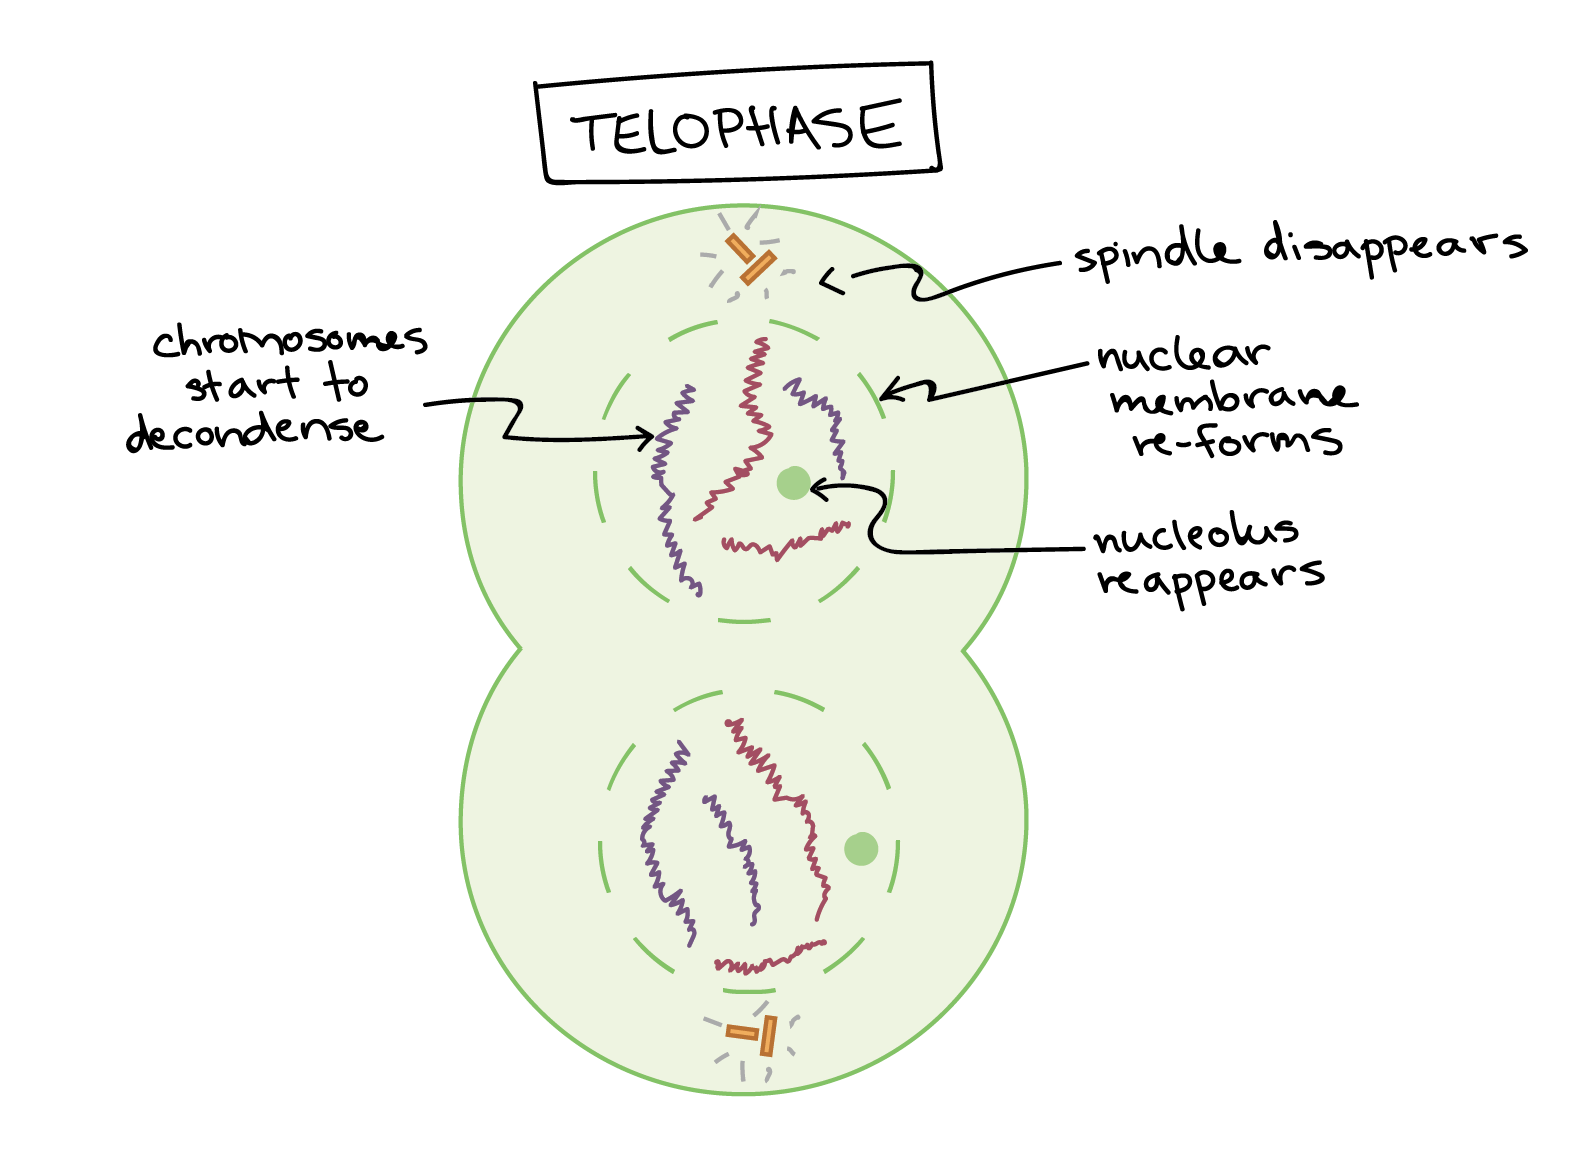 TELOPHASE
spindle disappears
chromosomes
start to
decondense
nuclear
membrane
re-forms
nucleolus
reappears